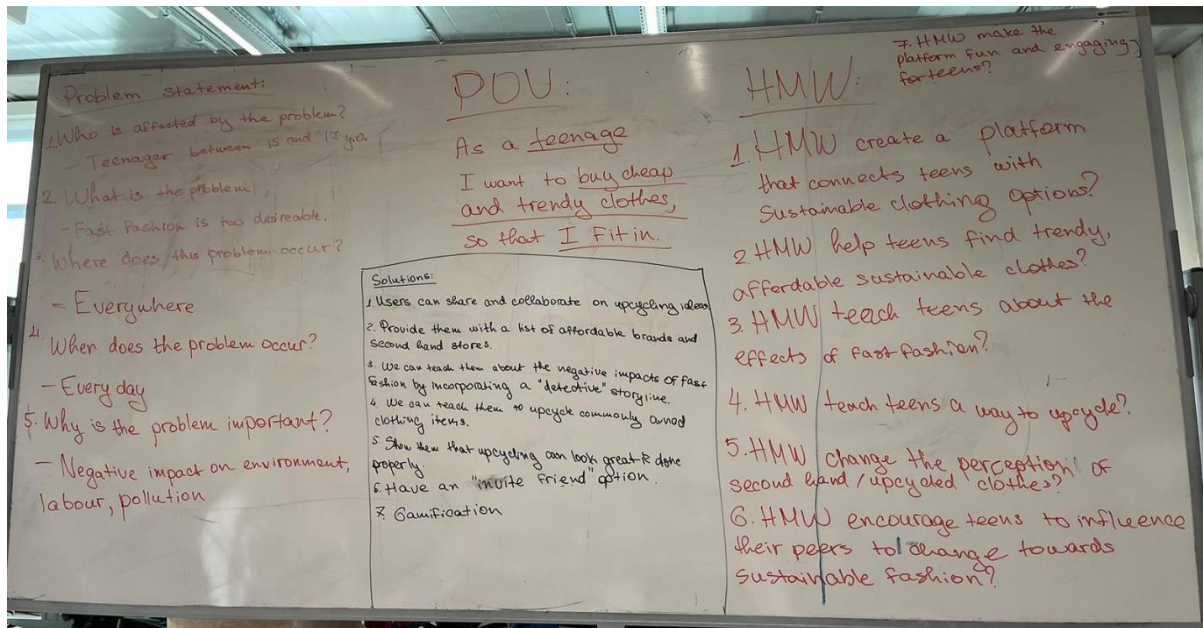 Problem statement:
1. Who is affected by the problem?
Teenager between 15 and 17 y.o.
2. What is the problem
- Fast Fashion is too desireable.
3. Where does this problem occur?
- Everywhere
4. When does the problem occur?
- Every day
5. Why is the problem important?
- Negative impact on environment,
labour, pollution
POV:
As a teenage
I want to buy cheap
and trendy clothes,
so that I fit in.
Solutions:
1. Users can share and collaborate on upcycling ideas
2. Provide them with a list of affordable brands and
second hand stores.
3. We can teach them about the negative impacts of fast
fashion by incorporating a "detective" storyline.
4. We can teach them to upcycle commonly owned
clothing items.
5. Show them that upcycling can look great if done
properly.
6. Have an "invite friend" option.
7. Gamification
HMW:
1. HMW create a platform
that connects teens with
sustainable clothing options?
2. HMW help teens find trendy,
affordable sustainable clothes?
3. HMW teach teens about the
effects of fast fashion?
4. HMW teach teens a way to upcycle?
5. HMW change the perception of
second hand / upcycled clothes?
6. HMW encourage teens to influence
their peers to change towards
sustainable fashion?
7. HMW make the
platform fun and engaging
for teens?